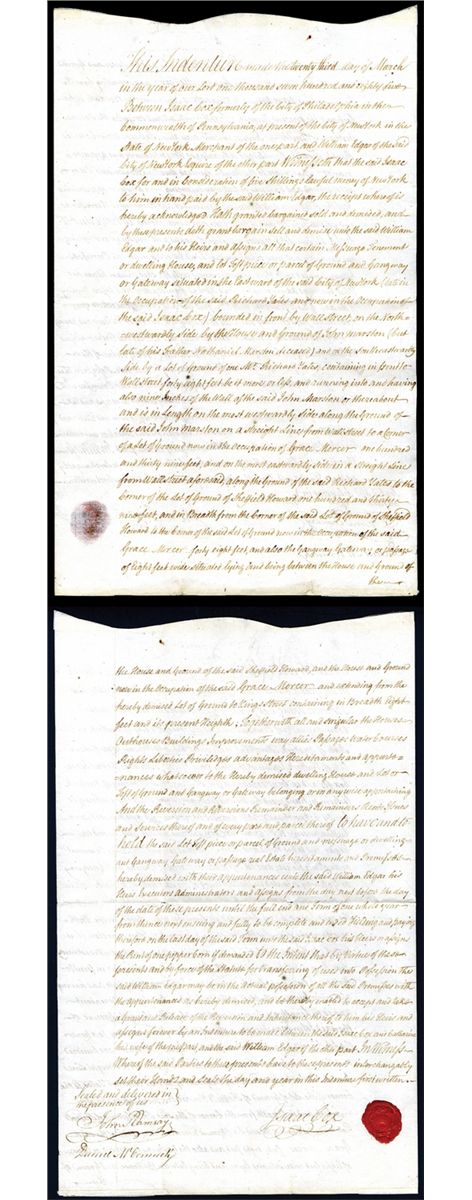 This Indenture made the twenty third day of March
in the year of our Lord one thousand seven hundred and eighty five
Between Isaac Cox formerly of the City of Philadelphia in the
commonwealth of Pennsylvania, at present of the City of New York in the
State of New York Merchant of the one part and William Edgar of the said
City of New York Esquire of the other part Witnesseth that the said Isaac
Cox for and in Consideration of five Shillings lawful money of New York
to him in hand paid by the said William Edgar, the receipt whereof is
hereby acknowledged Hath granted bargained sold and demised, and
by these presents doth grant bargain sell and demise unto the said William
Edgar and to his Heirs and assigns all that certain Messuage Tenement
or dwelling House, and Lot Toft piece or parcel of Ground and Gangway
or Gateway situated in the East ward of the said City of New York (late in
the Occupation of the said Richard Yates and now in the Occupation of
the said Isaac Cox) bounded in front by Wall Street, on the North
westwardly Side by the House and Ground of John Marston (but
late of his Father Nathaniel Marston deceased) and on the southeastwardly
Side by a Lot of Ground of one Mr Richard Yates, containing in front to
Wall Street forty eight feet be it more or less, and running into and having
also nine Inches of the Wall of the said John Marston or thereabout
and is in Length on the most westwardly Side along the Ground of
the said John Marston on a Straight Line from Wall Street to a Corner
of a Lot of Ground now in the occupation of Grace Mercer one hundred
and thirty nine feet, and on the most eastwardly Side in a Straight Line
from Wall Street aforesaid, along the Ground of the said Richard Yates to the
Corner of the Lot of Ground of Sheffield Howard one hundred and thirty
nine feet, and in Breadth from the Corner of the said Lot of Ground of Sheffield
Howard to the Corner of the said Lot of Ground now in the occupation of the said
Grace Mercer forty eight feet, and also the Gangway Gateway or passage
of eight feet wide situated lying and being between the House and Ground of
the House and Ground of the said Sheffield Howard, and the House and Ground
now in the Occupation of the said Grace Mercer and extending from the
hereby demised Lot of Ground to Kings Street containing in Breadth eight
feet and its present Heighth. Together with all and singular the Houses
Outhouses Buildings Improvements ways Passages water Courses
Rights Liberties Priviledges advantages Hereditaments and appurte-
nances whatsoever to the Hereby demised dwelling House and Lot or
Toft of Ground and Gangway or Gateway belonging or in any wise appertaining
And the Reversion and Reversions Remainder and Remainders Rents Issues
and Services thereof and of every part and parcel thereof to have and to
hold the said Lot Toft piece or parcel of Ground and messuage or dwelling
and Gangway Gateway or passage real Estate and Premises
hereby demised with their appurtenances unto the said William Edgar his
Heirs Executors administrators and assigns from the day next before the day
of the date of these presents until the full end and Term of one whole year
from thence next ensuing and fully to be complete and ended Yielding and paying
therefore on the last day of the said Term unto the said Isaac Cox his Heirs or assigns
the Rent of one pepper Corn if demanded to the Intent that by Virtue of these
presents and by force of the Statute for transferring of uses into Possession the
said William Edgar may be in the actual possession of all the said Premises with
the appurtenances as hereby demised, and be thereby enabled to accept and take
a Grant and Release of the Reversion and Inheritance thereof to him his Heirs and
assigns forever by an Indenture to be made between the said Isaac Cox and Catharine
his wife of the one part and the said William Edgar of the other part In Witness
Whereof the said Parties to these presents have to these presents interchangeably
set their Hands and Seals the day and year in this Indenture first written.
Sealed and delivered in
the presence of us
John Ramsay
Isaac Cox
Daniel McCormick